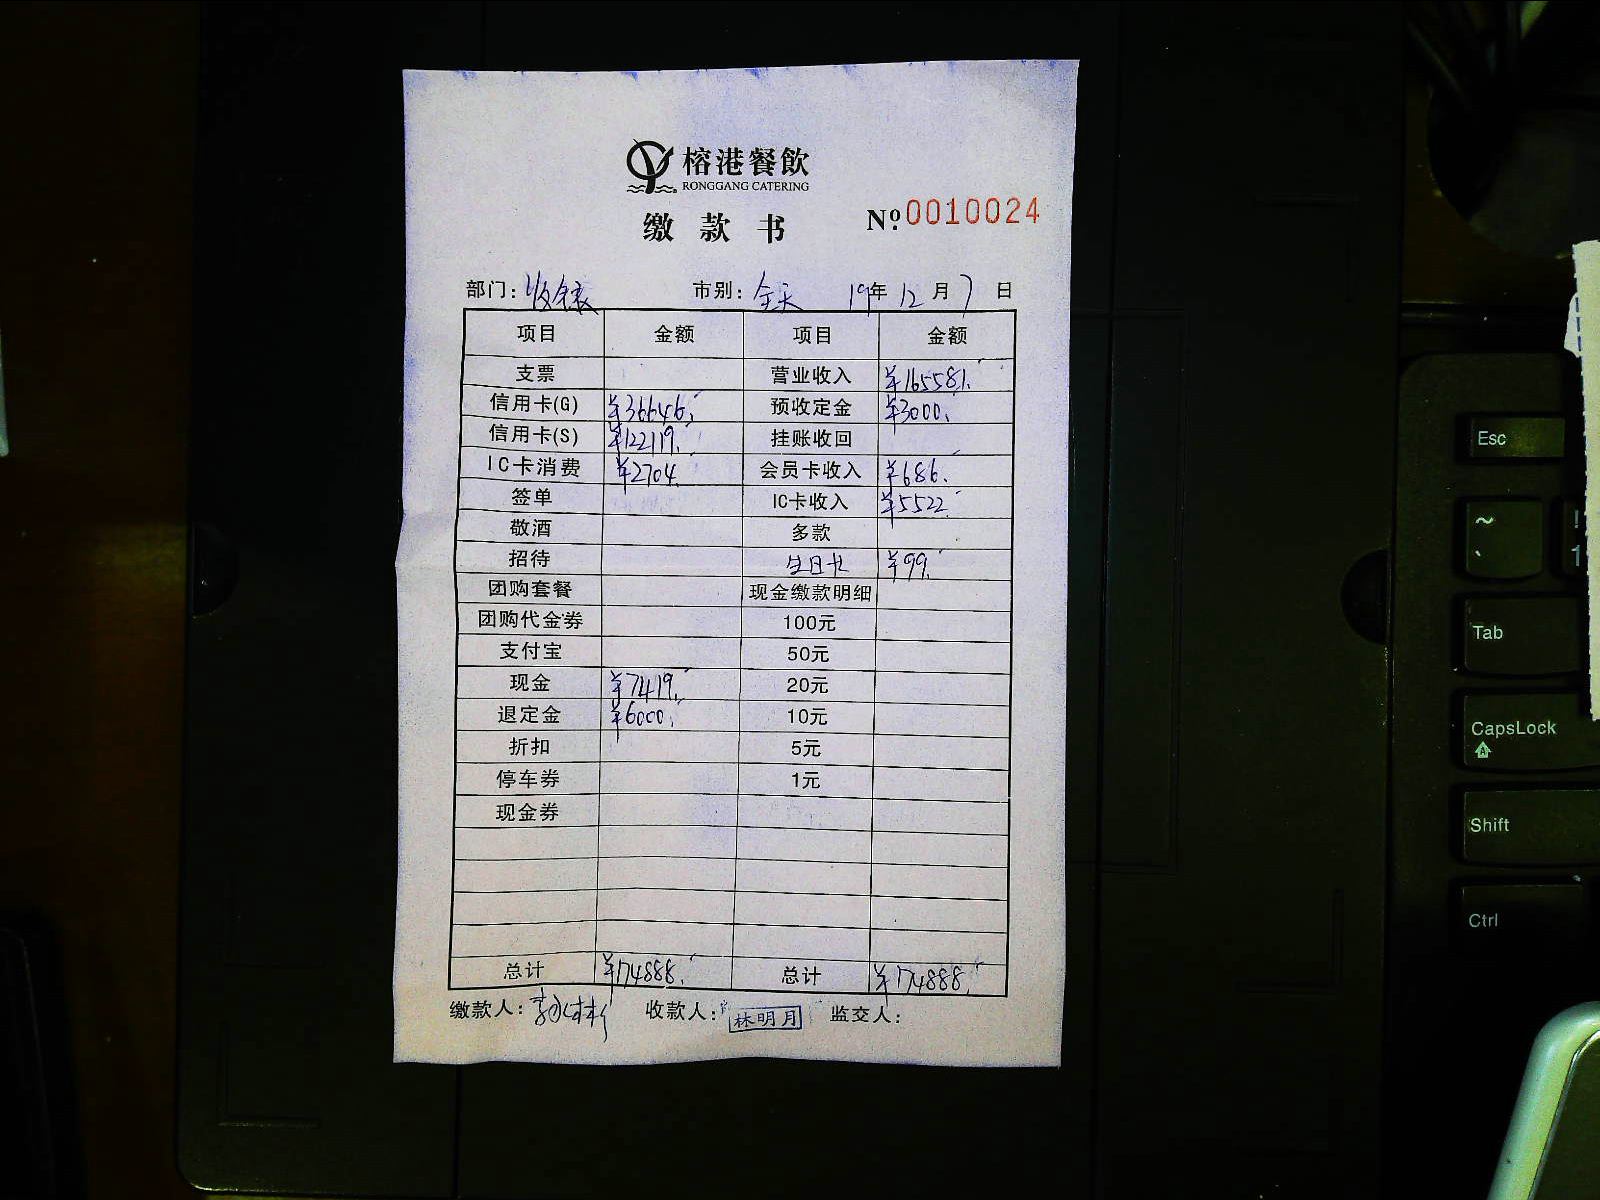 榕港餐飲
RONGGANG CATERING
缴款书 Nº 0010024
部门: 收银 市别: 全天 19年 12月 7日
项目 金额 项目 金额
支票 营业收入 ¥165581.
信用卡(G) ¥36646. 预收定金 ¥3000.
信用卡(S) ¥122119. 挂账收回
IC卡消费 ¥2704. 会员卡收入 ¥686.
签单 IC卡收入 ¥5522.
敬酒 多款
招待 生日卡 ¥99.
团购套餐 现金缴款明细
团购代金券 100元
支付宝 50元
现金 ¥7419. 20元
退定金 ¥6000. 10元
折扣 5元
停车券 1元
现金券
总计 ¥174888. 总计 ¥174888.
缴款人: 收款人: 林明月 监交人:
Esc
~
`
!
1
Tab
CapsLock
A
Shift
Ctrl